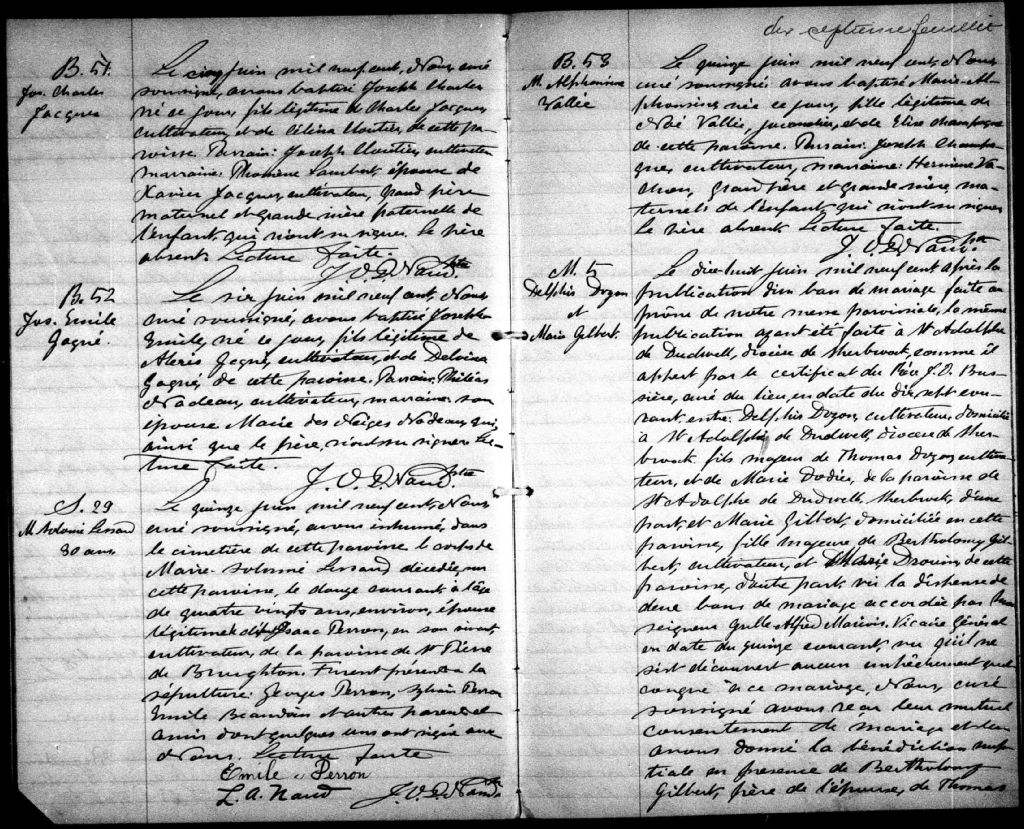 B. 51.
Jos. Charles
Jacques
Le cinq juin mil neuf cent, Nous curé
soussigné, avons baptisé Joseph Charles
né ce jour, fils légitime de Charles Jacques
cultivateur, et de Célina Cloutier, de cette pa-
roisse. Parrain: Joseph Cloutier, cultivateur
marraine: Lambert, épouse de
Xavier Jacques, cultivateur, grand père
maternel et grande mère paternelle de
l'enfant, qui n'ont su signer. Le père
absent. Lecture faite.
J. O. D. Naud. Ptre
B. 52
Jos. Emile
Gagné.
Le six juin mil neuf cent, Nous
curé soussigné, avons baptisé Joseph
Emile, né ce jour, fils légitime de
Alexis Gagné, cultivateur, et de
Gagné, de cette paroisse. Parrain:
Nadeau, cultivateur, marraine son
épouse Marie des Neiges Nadeau, qui,
ainsi que le père, n'ont su signer. Lec-
ture faite.
J. O. D. Naud. Ptre
S. 29
M. Lessard
80 ans
Le quinze juin mil neuf cent, Nous
curé soussigné, avons inhumé, dans
le cimetière de cette paroisse le corps de
Marie Lessard décédée, en
cette paroisse, le douze courant à l'âge
de quatre vingts ans, environ, épouse
légitime Isaac Perron, en son vivant,
cultivateur, de la paroisse de St Pierre
de Broughton. Furent présents à la
sépulture: Georges Perron, Perron
Emile Beaudoin et autres parents et
amis dont quelques uns ont signé avec
Nous. Lecture faite
Emile Perron
L. A. Naud J. O. D. Naud. Ptre
dix septième feuillet
B. 53
M. Alphonsine
Vallée
Le quinze juin mil neuf cent, Nous
curé soussigné avons baptisé, Marie Al-
phonsine, née ce jour, fille légitime de
Noé Vallée, journalier, et de Elise Champagne
de cette paroisse. Parrain: Joseph Champa-
gne, cultivateur, marraine: Hermine Va-
chon, grand père et grande mère, ma-
ternels de l'enfant, qui n'ont su signer.
Le père absent. Lecture faite.
J. O. D. Naud. Ptre
M. 5
Delphis Dozon
et
Marie Gilbert.
Le dix-huit juin mil neuf cent après la
publication d'un ban de mariage faite au
prône de notre messe paroissiale, la même
publication ayant été faite à St Adolphe
de Dudswell, diocèse de Sherbrook, comme il
appert par le certificat du Rév. J. O. Bus-
sière, curé du lieu, en date du dix sept cou-
rant, entre: Delphis Dozon, cultivateur, domicilié
à St Adolphe de Dudswell, diocèse de Sher-
brook, fils majeur de Thomas Dozon, cultiva-
teur, et de Marie Dodier, de la paroisse de
St Adolphe de Dudswell, Sherbrook, d'une
part, et Marie Gilbert, domiciliée en cette
paroisse, fille majeure de Bertholomy Gil-
bert, cultivateur, et Marie Drouin, de cette
paroisse, d'autre part, vu la dispense de
deux bans de mariage accordée par Mon
seigneur Alfred Marois, Vicaire Général
en date du quinze courant, vu qu'il ne
s'est découvert aucun empêchement quel
conque à ce mariage, Nous, curé
soussigné avons reçu leur mutuel
consentement de mariage et leur
avons donné la bénédiction nup-
tiale en présence de Bertholomy
Gilbert, père de l'épouse, de Thomas